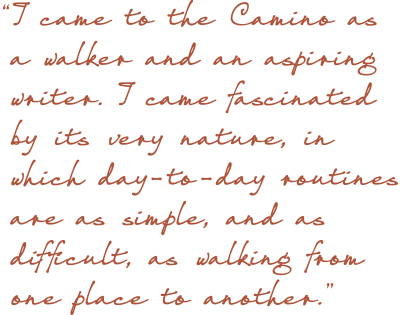 “I came to the Camino as
a walker and an aspiring
writer. I came fascinated
by its very nature, in
which day-to-day routines
are as simple, and as
difficult, as walking from
one place to another.”